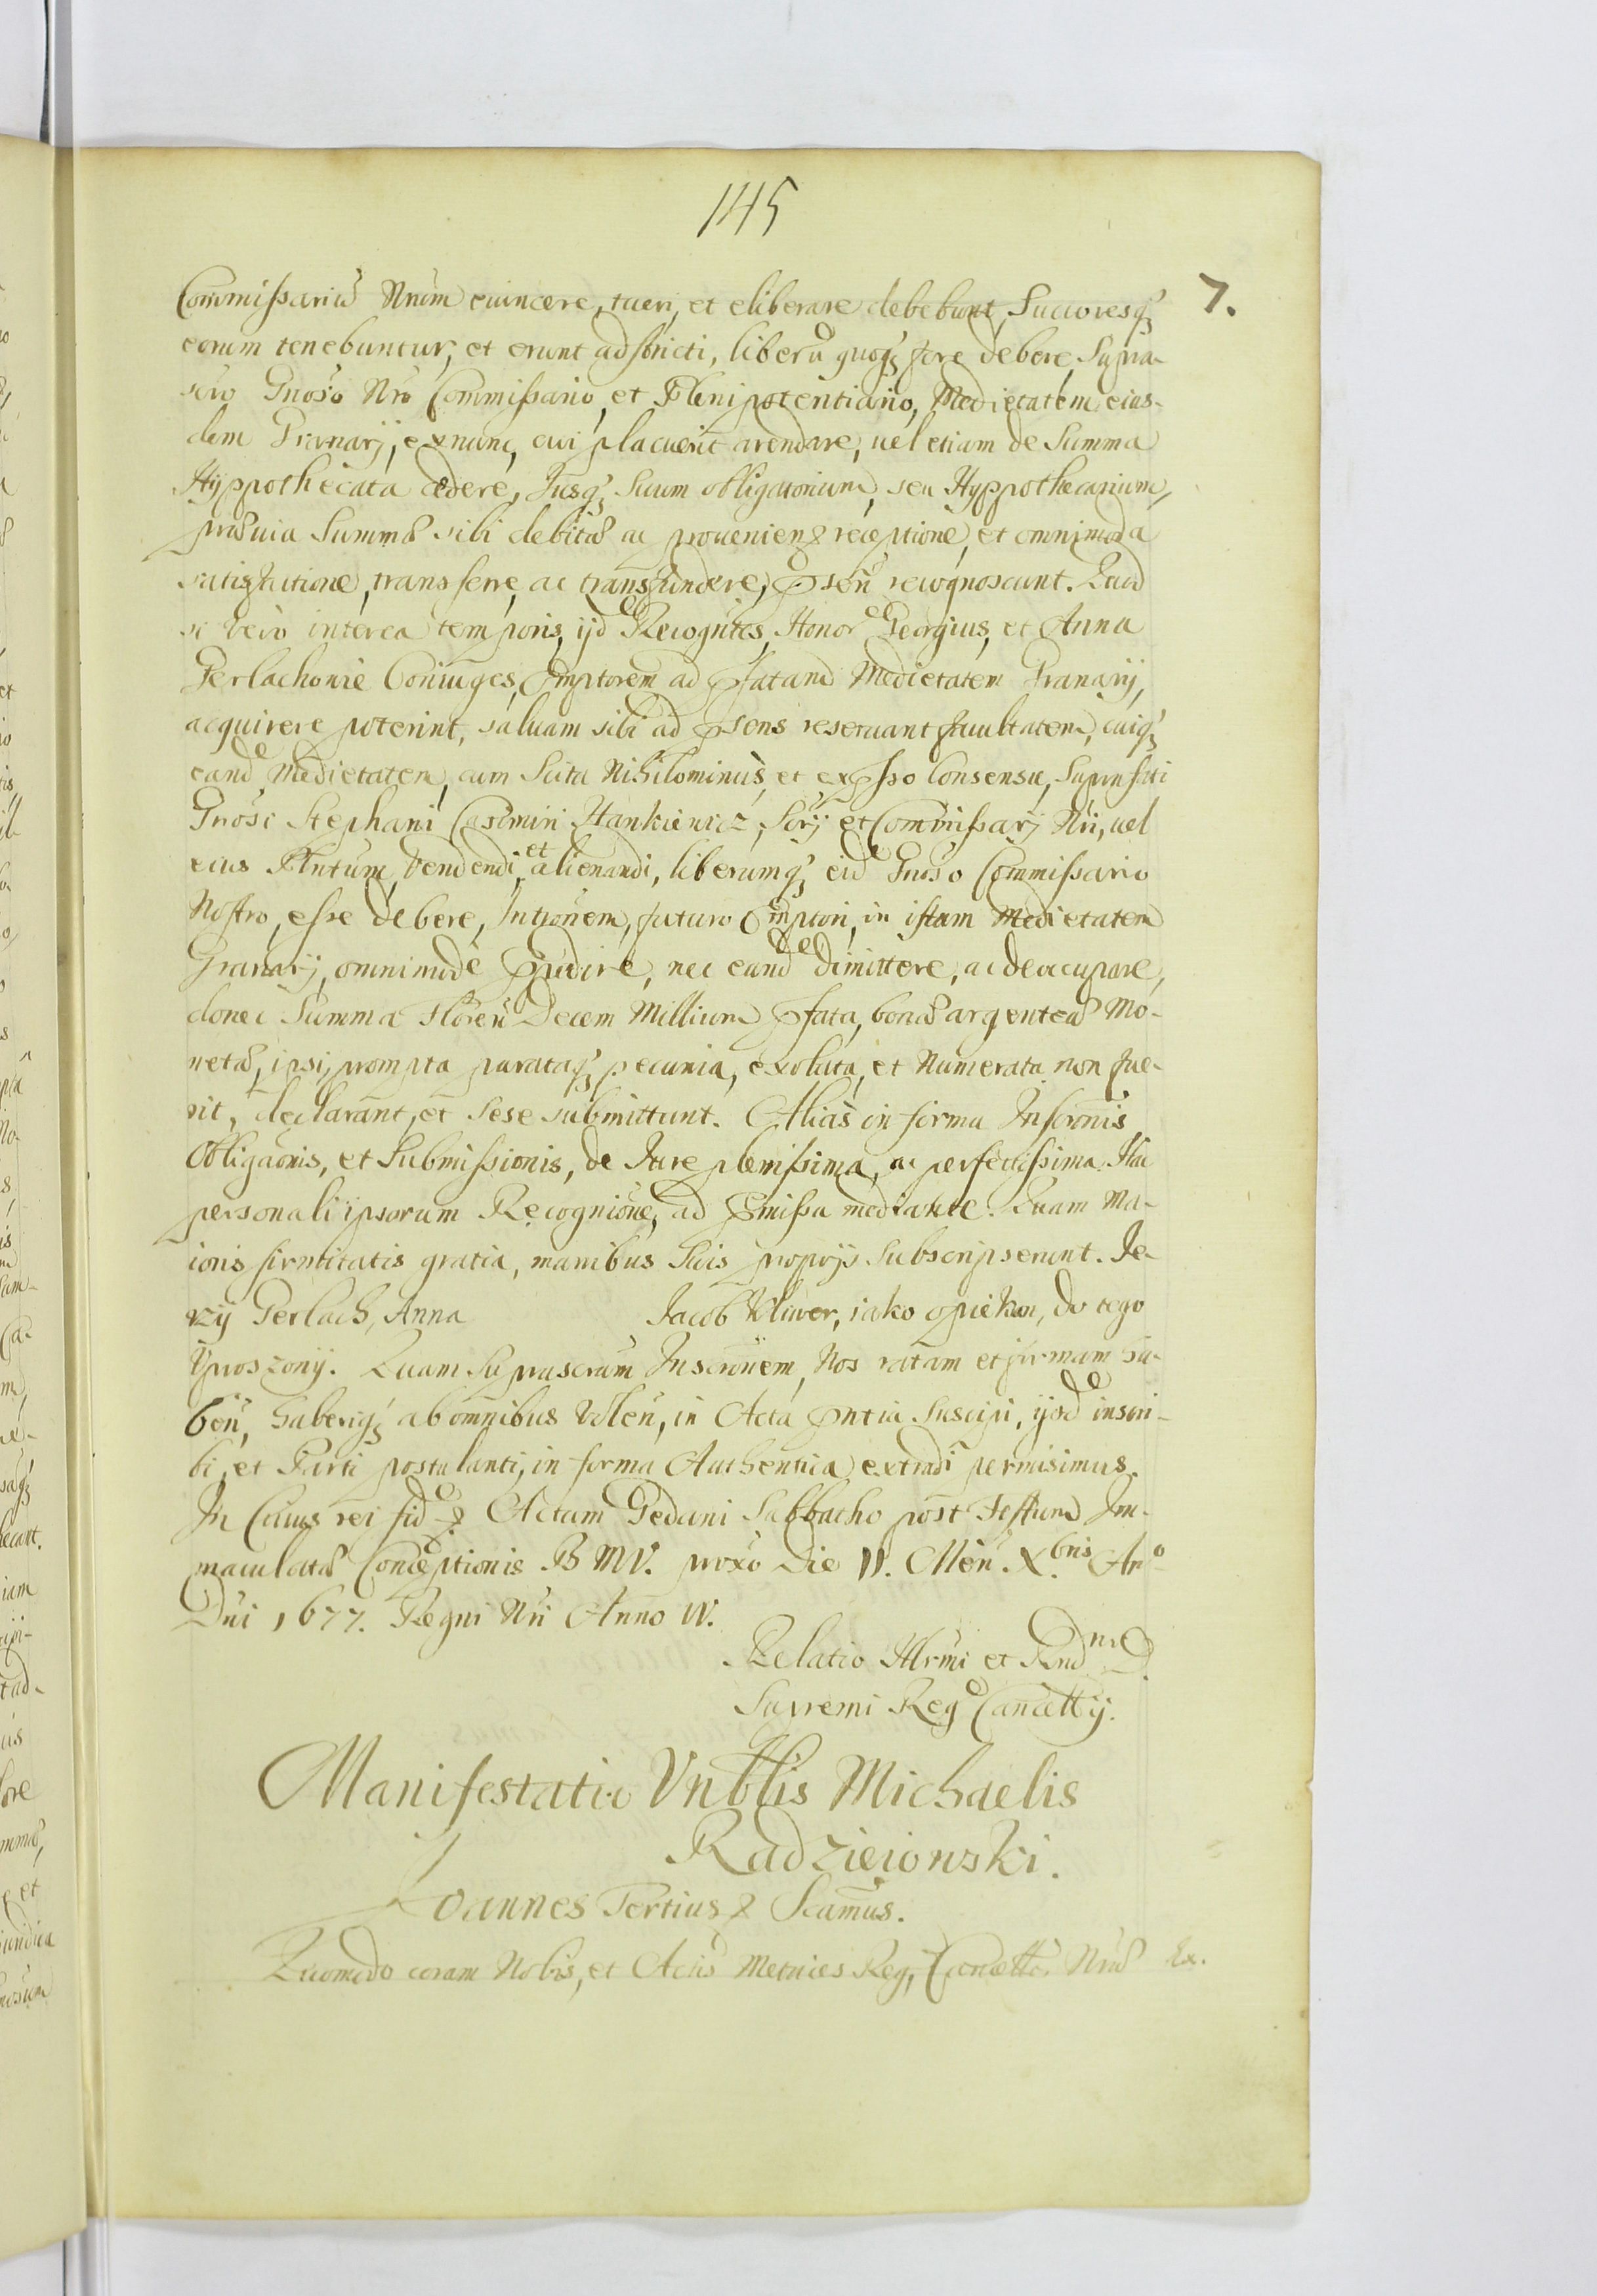 145
7.
Commissariũ Nrum evincere, tueri, et eliberare debebunt, Succoresq3
eorum tenebuntur, et erunt adstricti, liberũ quoq3 fore debere, Supra-
scro Gnoso Nro Commissario, et Plenipotentiario, Medietatem eius-
dem Granarij, exnunc, cui placuerit arendare, uel etiam de Summa
Hyppothecata cedere, Jusq3 Suum obligatorium, seu Hyppothecarium,
præuia Summæ sibi debitæ ac provenien receptione, et omnimoda
satisfactione, transferre, ac transfundere, psen recognoscunt. Quod
si vero interea temporis, ijd Recogntes, Honor Georgius, et Anna
Gerlachowie Coniuges, Emptorem ad pfatam Medietatem Granarij,
acquirere poterint, salvam sibi ad psons reservant facultatem, cuiq3
eand Medietatem, cum Scitu Nihilominus, et expsso Consensu, Suprascti
Gnosi Stephani Casimiri Hankiewicz, Srij et Commissarij Nri, uel
eius Plntum, Vendendi, et alienandi, liberumq3 eid Gnoso Commissario
Nostro, esse debere, Intronem, futuro Emptori, in istam Medietatem
Granarij, omnimode ppedire, nec eand dimittere, ac deoccupare,
donec Summa Floren Decem Millium pfata, bonæ argenteæ Mo-
netæ, ipsi, prompta parataq3 pecunia, exoluta, et Numerata non fue-
rit, declarant, et sese submittunt. Alias in forma Inscronis
Obligaonis, et Submissionis, de Jure plenissima, ac perfectissima. Hac
personali ipsorum Recognione, ad pmissa mediante. Quam Ma-
ioris firmitatis gratia, manibus Suis proprijs subscripserunt. Je-
rzy Gerlach, Anna Jacob Uliwer, iako opiekun, do tego
Uproszony. Quam Suprascram Inscronem, Nos ratam et firmam ha-
ben, haberiq3 ab omnibus Volen, in Acta pntia Suscipi, ijsd inscri-
bi, et Parti postulanti, in forma Authentica extradi permisimus.
In Cuius rei fid Actum Gedani Sabbatho post Festum Im-
maculatæ Conceptionis B M V. proxo Die 11. Men. Xbris Ano
Dni 1677. Regni Nri Anno IV.
Relatio Illrmi et Rnd
Supremi Reg Cancellrij.
Manifestatio Vrblis Michaelis
Radzieiowski.
Joannes Tertius Scamus.
Quomodo coram Nobis, et Actis Metrices Reg, Cancell Nræ Ex.